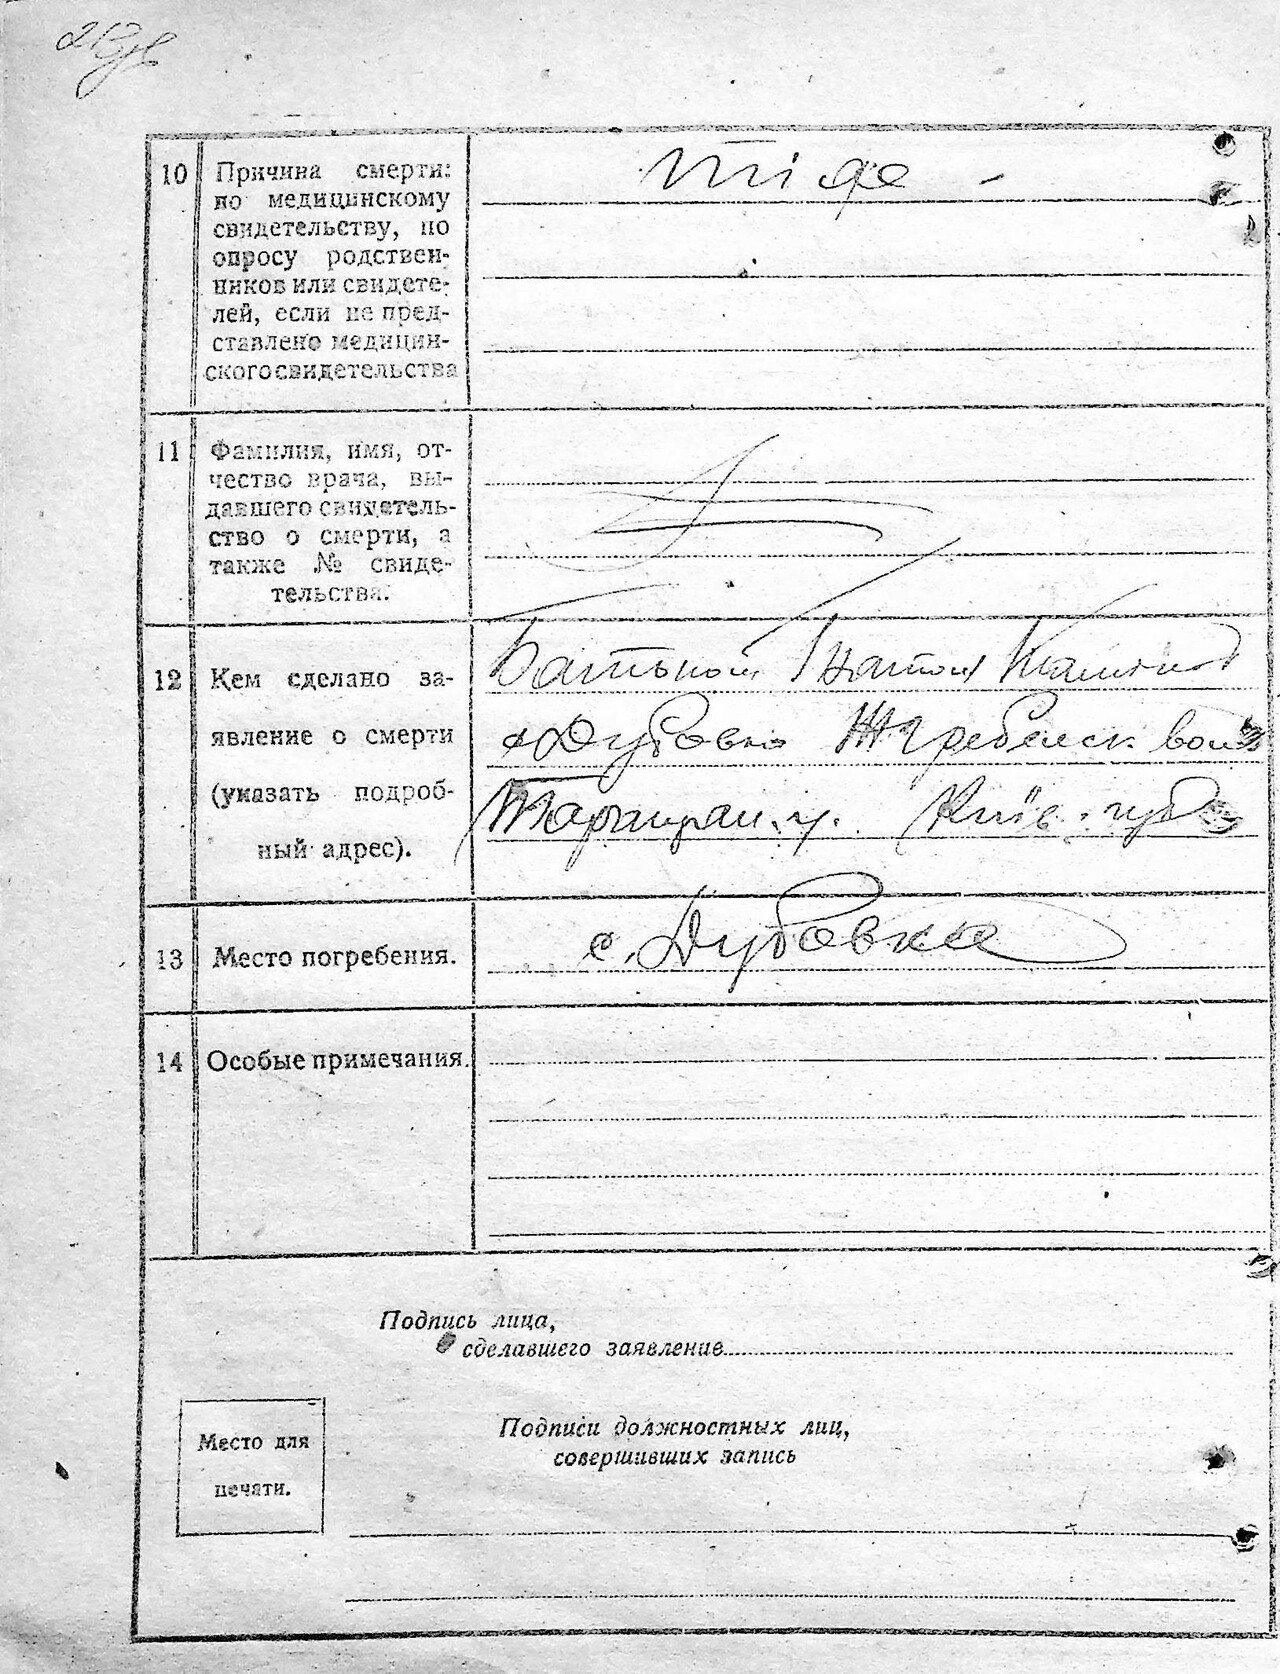 10 Причина смерти:
по медицинскому
свидетельству, по
опросу родствен-
ников или свидете-
лей, если не пред-
ставлено медицин-
ского свидетельства
11 Фамилия, имя, от-
чество врача, вы-
давшего свидетель-
ство о смерти, а
также № свиде-
тельства.
12 Кем сделано за-
явление о смерти
(указать подроб-
ный адрес).
Батьком Гнатом
с Дубовка Жгребелеск вол
Таращан. у. Київ. губ
13 Место погребения.
с. Дубовка
14 Особые примечания.
Подпись лица,
сделавшего заявление
Место для
печати.
Подписи должностных лиц,
совершивших запись